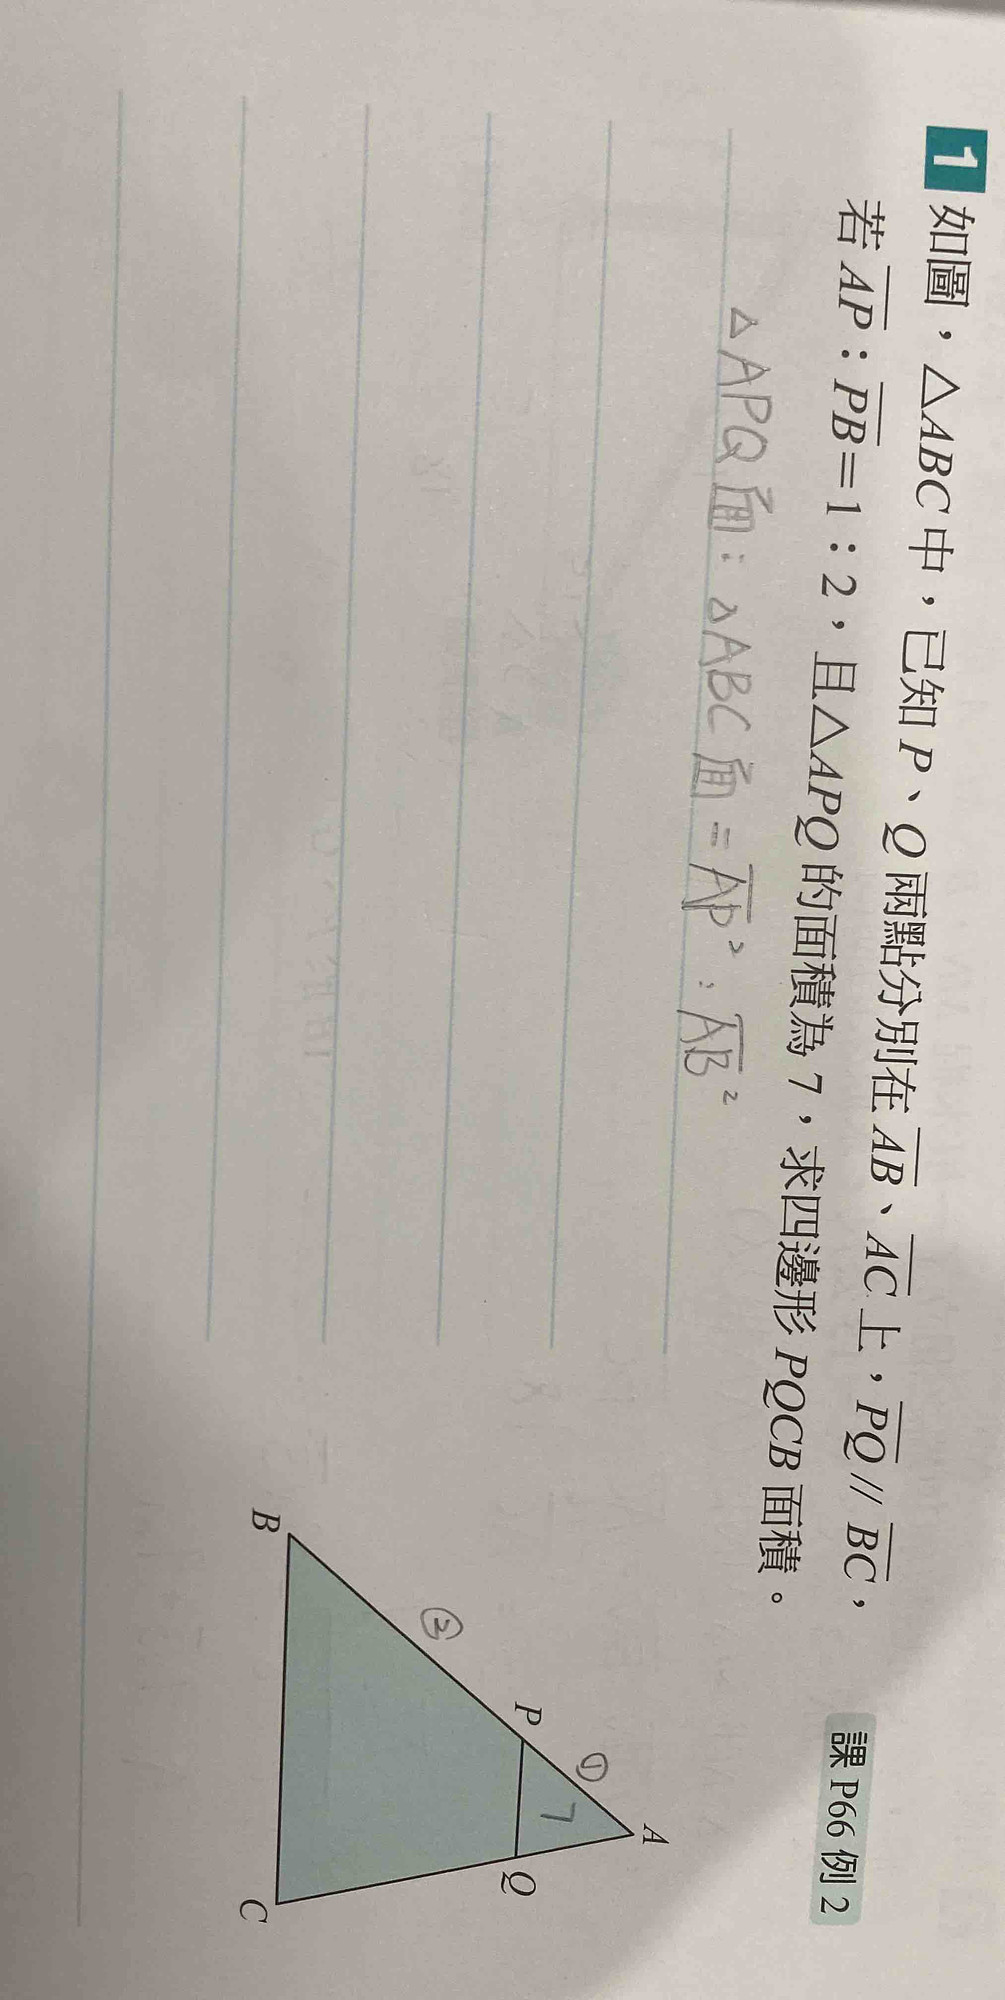 1 如圖，△ABC中，已知P、Q兩點分別在AB、AC上，PQ // BC，
若AP：PB=1：2，且△APQ的面積為7，求四邊形PQCB面積。
課P66例2
△APQ面：△ABC面 = AP²：AB²
A
①
7
P
Q
②
B
C